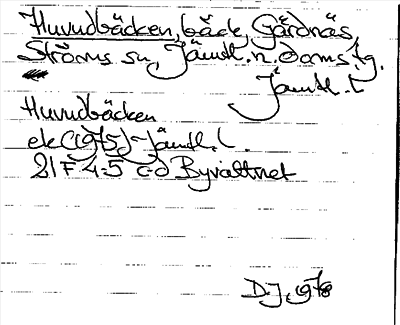 Huvudbäcken, bäck, Gärdnäs,
Ströms sn, Jämtl. n. doms. tg.
Jämtl. l
Huvudbäcken
ek (1975) Jämtl. l.
21 F 4-5 c-d Byvattnet
DJ 1978